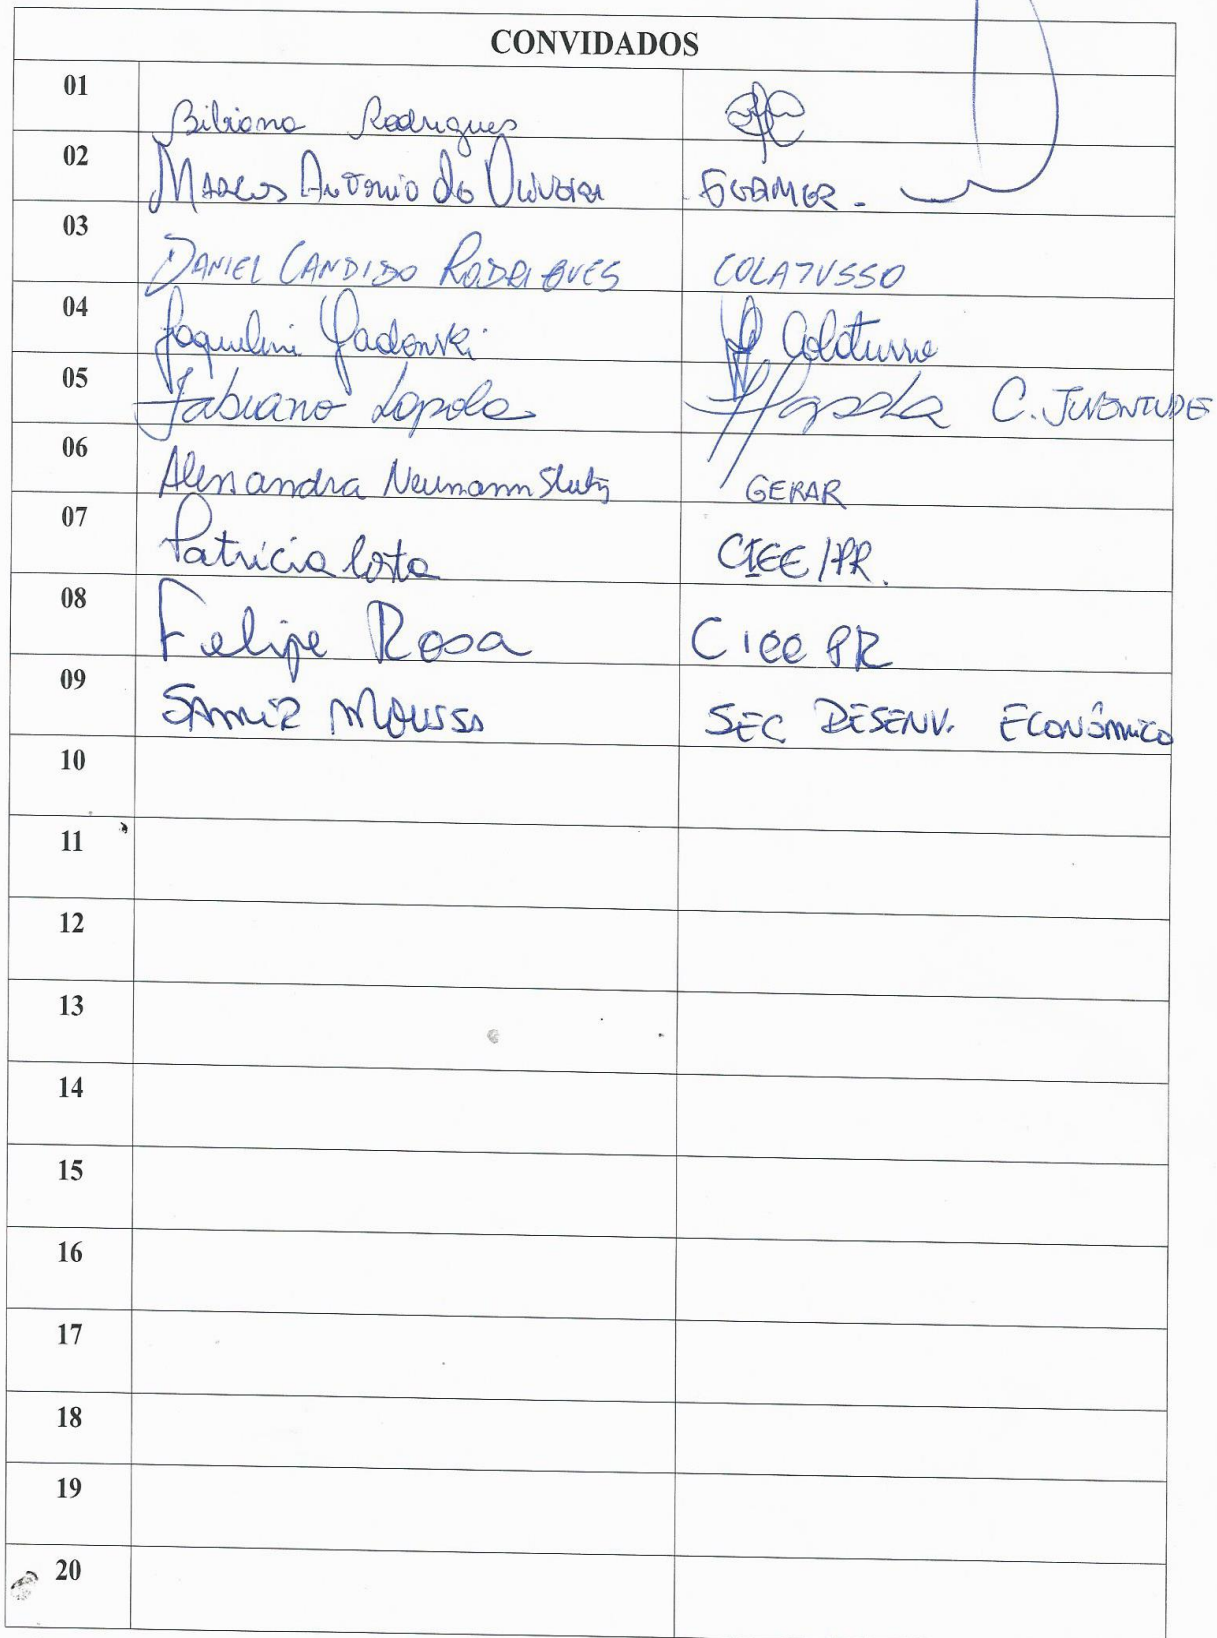 CONVIDADOS
01 Bibiana Rodrigues
02 Marcos Antonio de Oliveira
03 DANIEL CANDIDO RODRIGUES COLATUSSO
04 Jaqueline Colatusso
05 Fabiano Lapola C. JUVENTUDE
06 Alessandra Neumann GERAR
07 Patricia Costa CIEE/PR.
08 Felipe Rosa CIEE PR
09 SAMIR MOUSSA SEC DESENV. ECONÔMICO
10
11
12
13
14
15
16
17
18
19
20